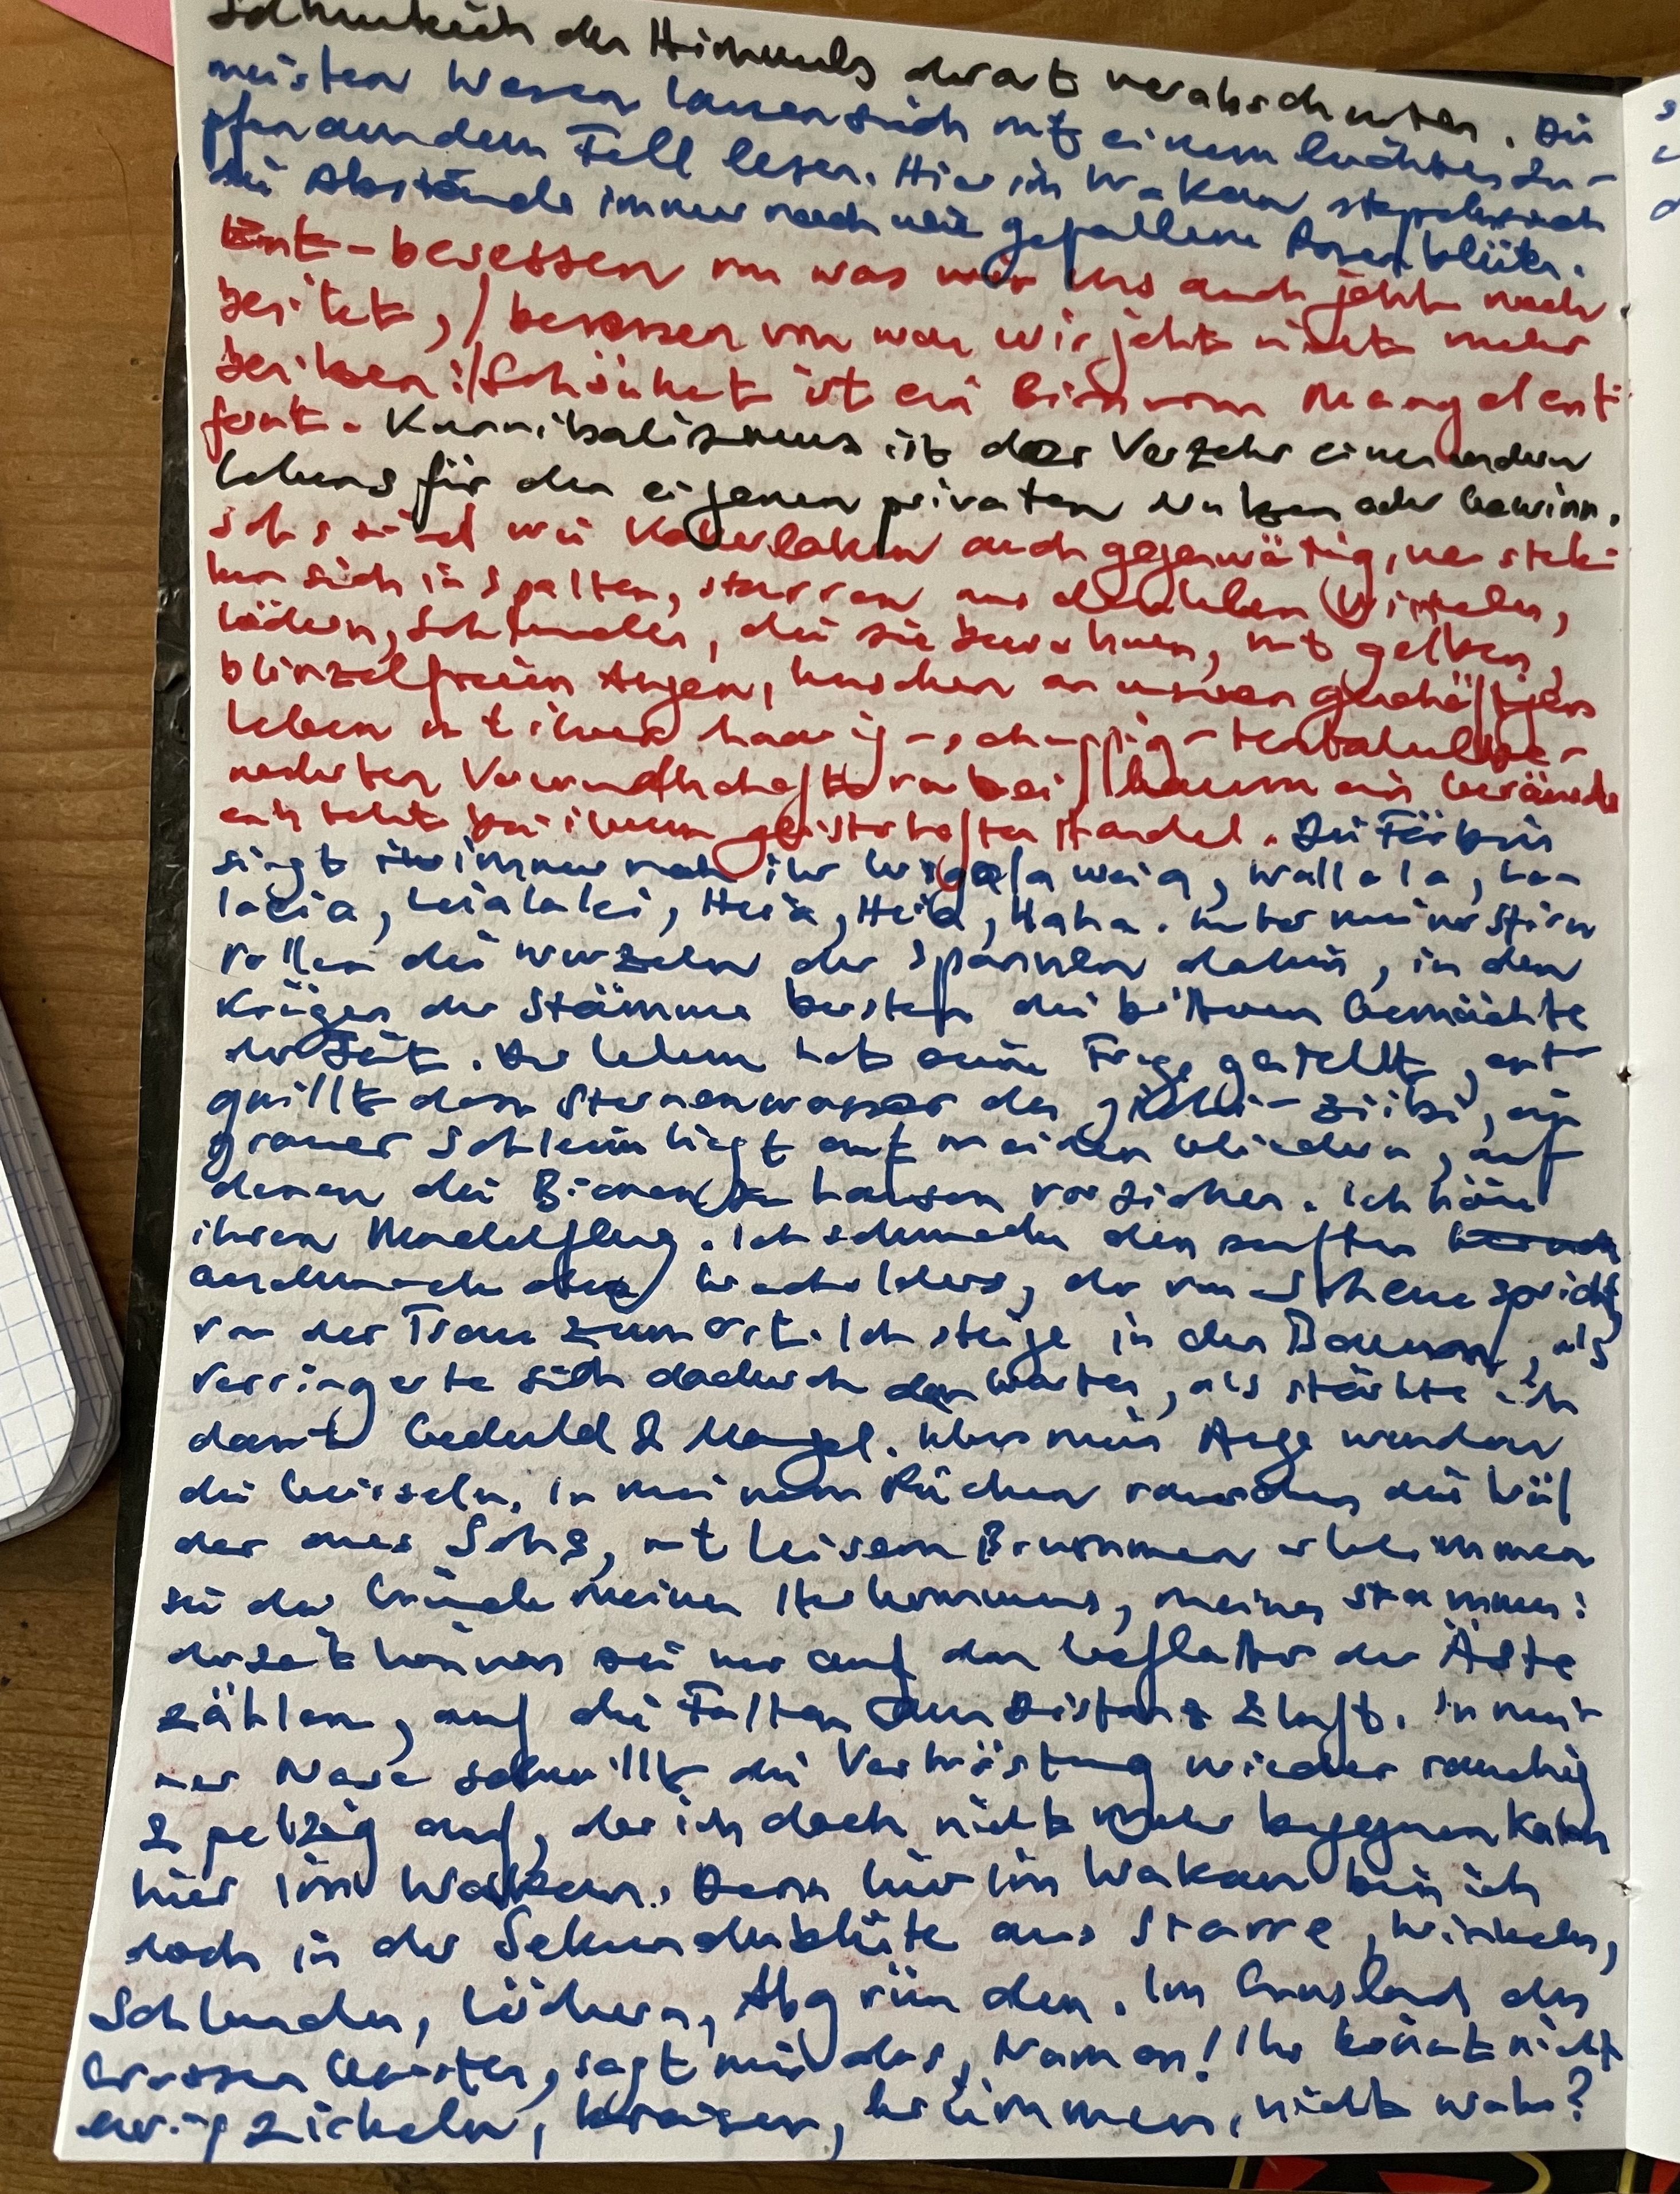 der Himmels derart verabscheuten. Die
meisten Wesen lassen sich mit einem leuchtend zu-
dem Fell lesen. Hier im Wakan stapeln sich
die Abstände immer noch wie gefallene Rosenblüten.
Ent-besessen von was wir uns auch jetzt noch
besitzt, / besessen von was wir jetzt nicht mehr
besitzen :/ Schönheit ist ein Bissen vom Mangel ent-
fernt. Kannibalismus ist der Verzehr eines andern
Lebens für den eigenen privaten Nutzen oder Gewinn.
Sohs sind wie Kakerlaken auch gegenwärtig, verstek-
ken sich in Spalten, starren aus dunklen Winkeln,
Löchern, Schlünden, die sie bewohnen, mit gelben,
blinzelfreien Augen, huschen an unseren geschäftigen
Leben mit ihrer haarig-schuppig-tentakulbe-
wehrten Verwandtschaft vorbei / kaum ein Geräusch
entsteht bei ihrem geisterhaften Handel. Die Färbin
singt immer noch ihr Wigala weia, Wallala, La-
laeia, Leialalei, Heia, Heia, Haha. Unter meiner Stirn
rollen die Wurzeln der Spannen dahin, in den
Krügen der Stämme bersten die bitteren Gemächte
der Zeit. Das Leben hat seine Frage gestellt, ent-
quillt dem Sternenwasser des gichi-ziibi, ein
grauer Schleim liegt auf meinen Gliedern, auf
denen die Bienen zu hausen vorziehen. Ich höre
ihren Nadelflug. Ich schmecke den sanften
des Wacholders, der von spricht,
von der Traue zum Ort. Ich steige in den Baum, als
verringerte sich dadurch das Warten, als stärkte ich
damit Geduld & Mangel. Über mein Auge wandern
die Geisseln. In meinem Rücken rauschen die Wäl-
der des Sohs, mit leisem Brummen erklimmen
sie die Gründe meiner Herkommens, meines Stammes:
derzeit können sie nur auf das Geflatter der Äste
zählen, auf die Falten aus Distanz & Luft. In mei-
ner Nase schwillt die Vertröstung wieder rauchig
& pelzig auf, der ich doch nicht mehr begegnen kann
hier im Wakan. Denn hier im Wakan bin ich
doch in der Sekundenblüte aus Starre, Winkeln,
Schlünden, Löchern, Abgründen. Im Grusland der
Grossen Geister, sagt mir das, Namen! Ihr könnt nicht
ewig zirkeln, kreisen, krümmen, nicht wahr?